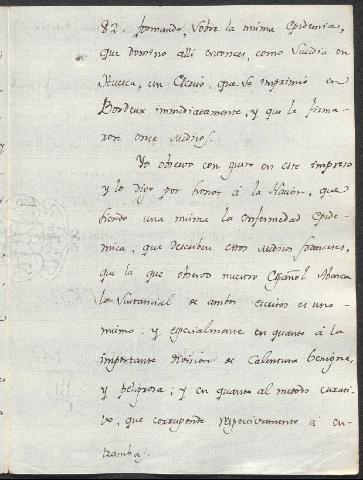 82. formando, sobre la misma Epidemia,
que domino alli entonces, como sucedia en
Huesca, un Escrito, que se imprimio en
Bordeux immediatamente, y que le firma-
ron once Medicos.
Yo observo con gusto en este impreso
y lo digo por honor à la Nacion, que
siendo una misma la enfermedad epide-
mica, que describen estos Medicos franceses,
que la que observò nuestro Español Abarca
lo sustancial de ambos escritos es uno
mismo: y especialmente en quanto à la
importante division de Calentura benigna,
y peligrosa; y en quanto al metodo curati-
vo, que corresponde respectivamente à en-
trambas.